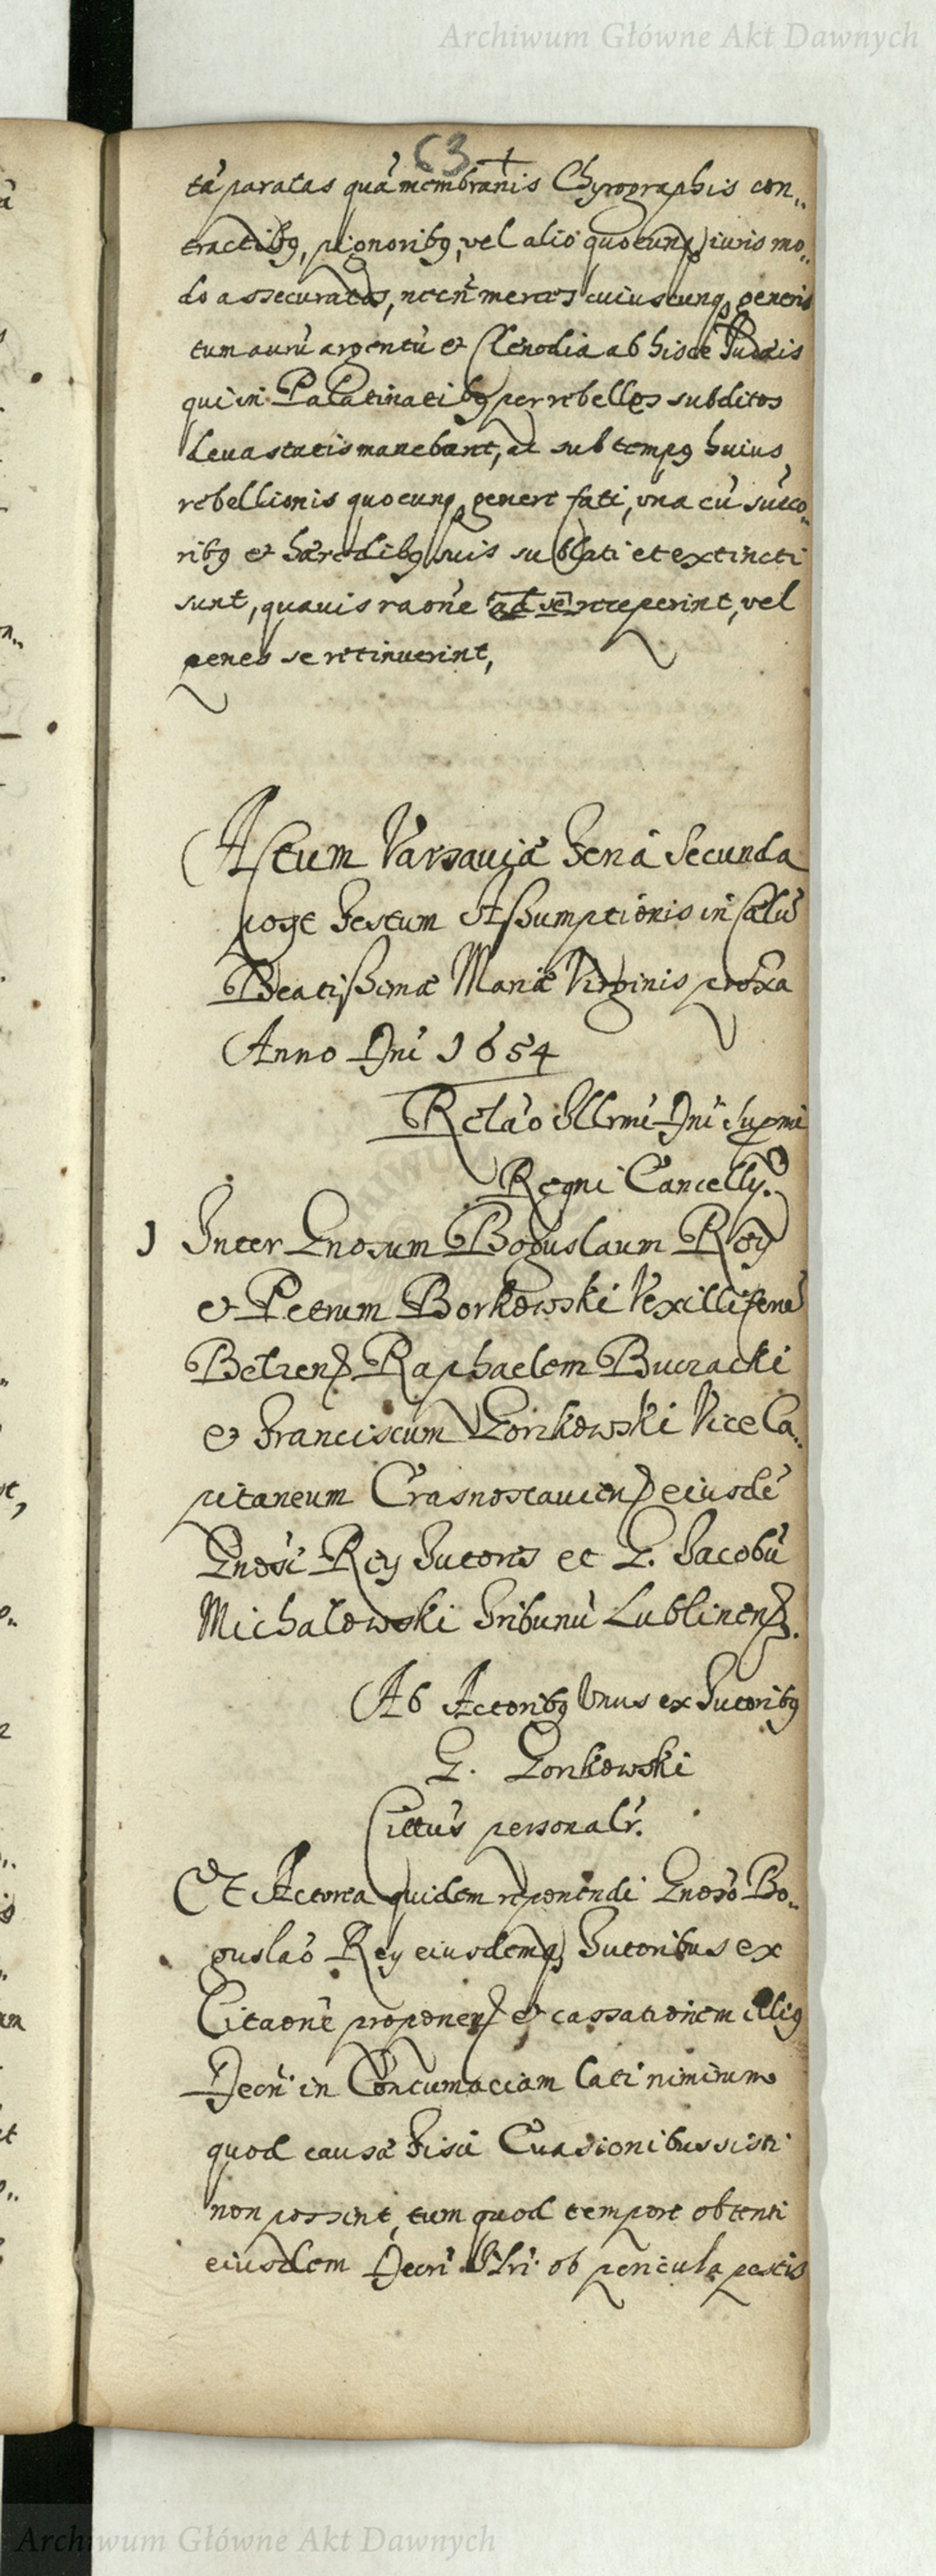 Archiwum Główne Akt Dawnych
63
tá paratas quá membranis Chyrographis con„
tractibq, pignoribq, vel alió quocunq iuris mo„
do assecuratas, necñ merces cuiuscunq generis
tum aurú argentú et Clenodia ab hisce Judæis
qui in Palatinatibq per rebelles subditos
devastatis manebant, ac sub tempq huius
rebellionis quocunq genere fati, una cú succo„
ribq et hæredibq suis sublati et extincti
sunt, quavis raone ad se receperint, vel
penes se retinuerint,
Actum Varsaviæ Feria Secunda
post Festum Assumptionis in Cælú
Beatissimæ Mariæ Virginis proxa
Anno Dni 1654
Relao Illrmi Dni Supmi
Regni Cancellrÿ.
1 Inter Gnosum Boguslaum Rey
et Petrum Borkowski Vexilliferú
Belzens Raphaelem Bucracki
et Franciscum Gorzkowski Vice Ca„
pitaneum Crasnostaviens eiusdé
Gnosi Rey Tutores et G. Jacobú
Michalowski Tribunú Lublinens.
Ab Actoribq Unus ex Tutoribq
G. Gorzkowski
Cittus personalr.
Et Actorea quidem reponendi Gnoso Bo„
guslao Rey eiusdemq Tutoribus ex
Citaone proponens et cassationem illiq
Decri in Contumaciam lati nimirum
quod causa Fisci Evasionibus sisti
non possint, tum quod tempore obtenti
eiusdem Decri ob pericula pestis
Archiwum Główne Akt Dawnych